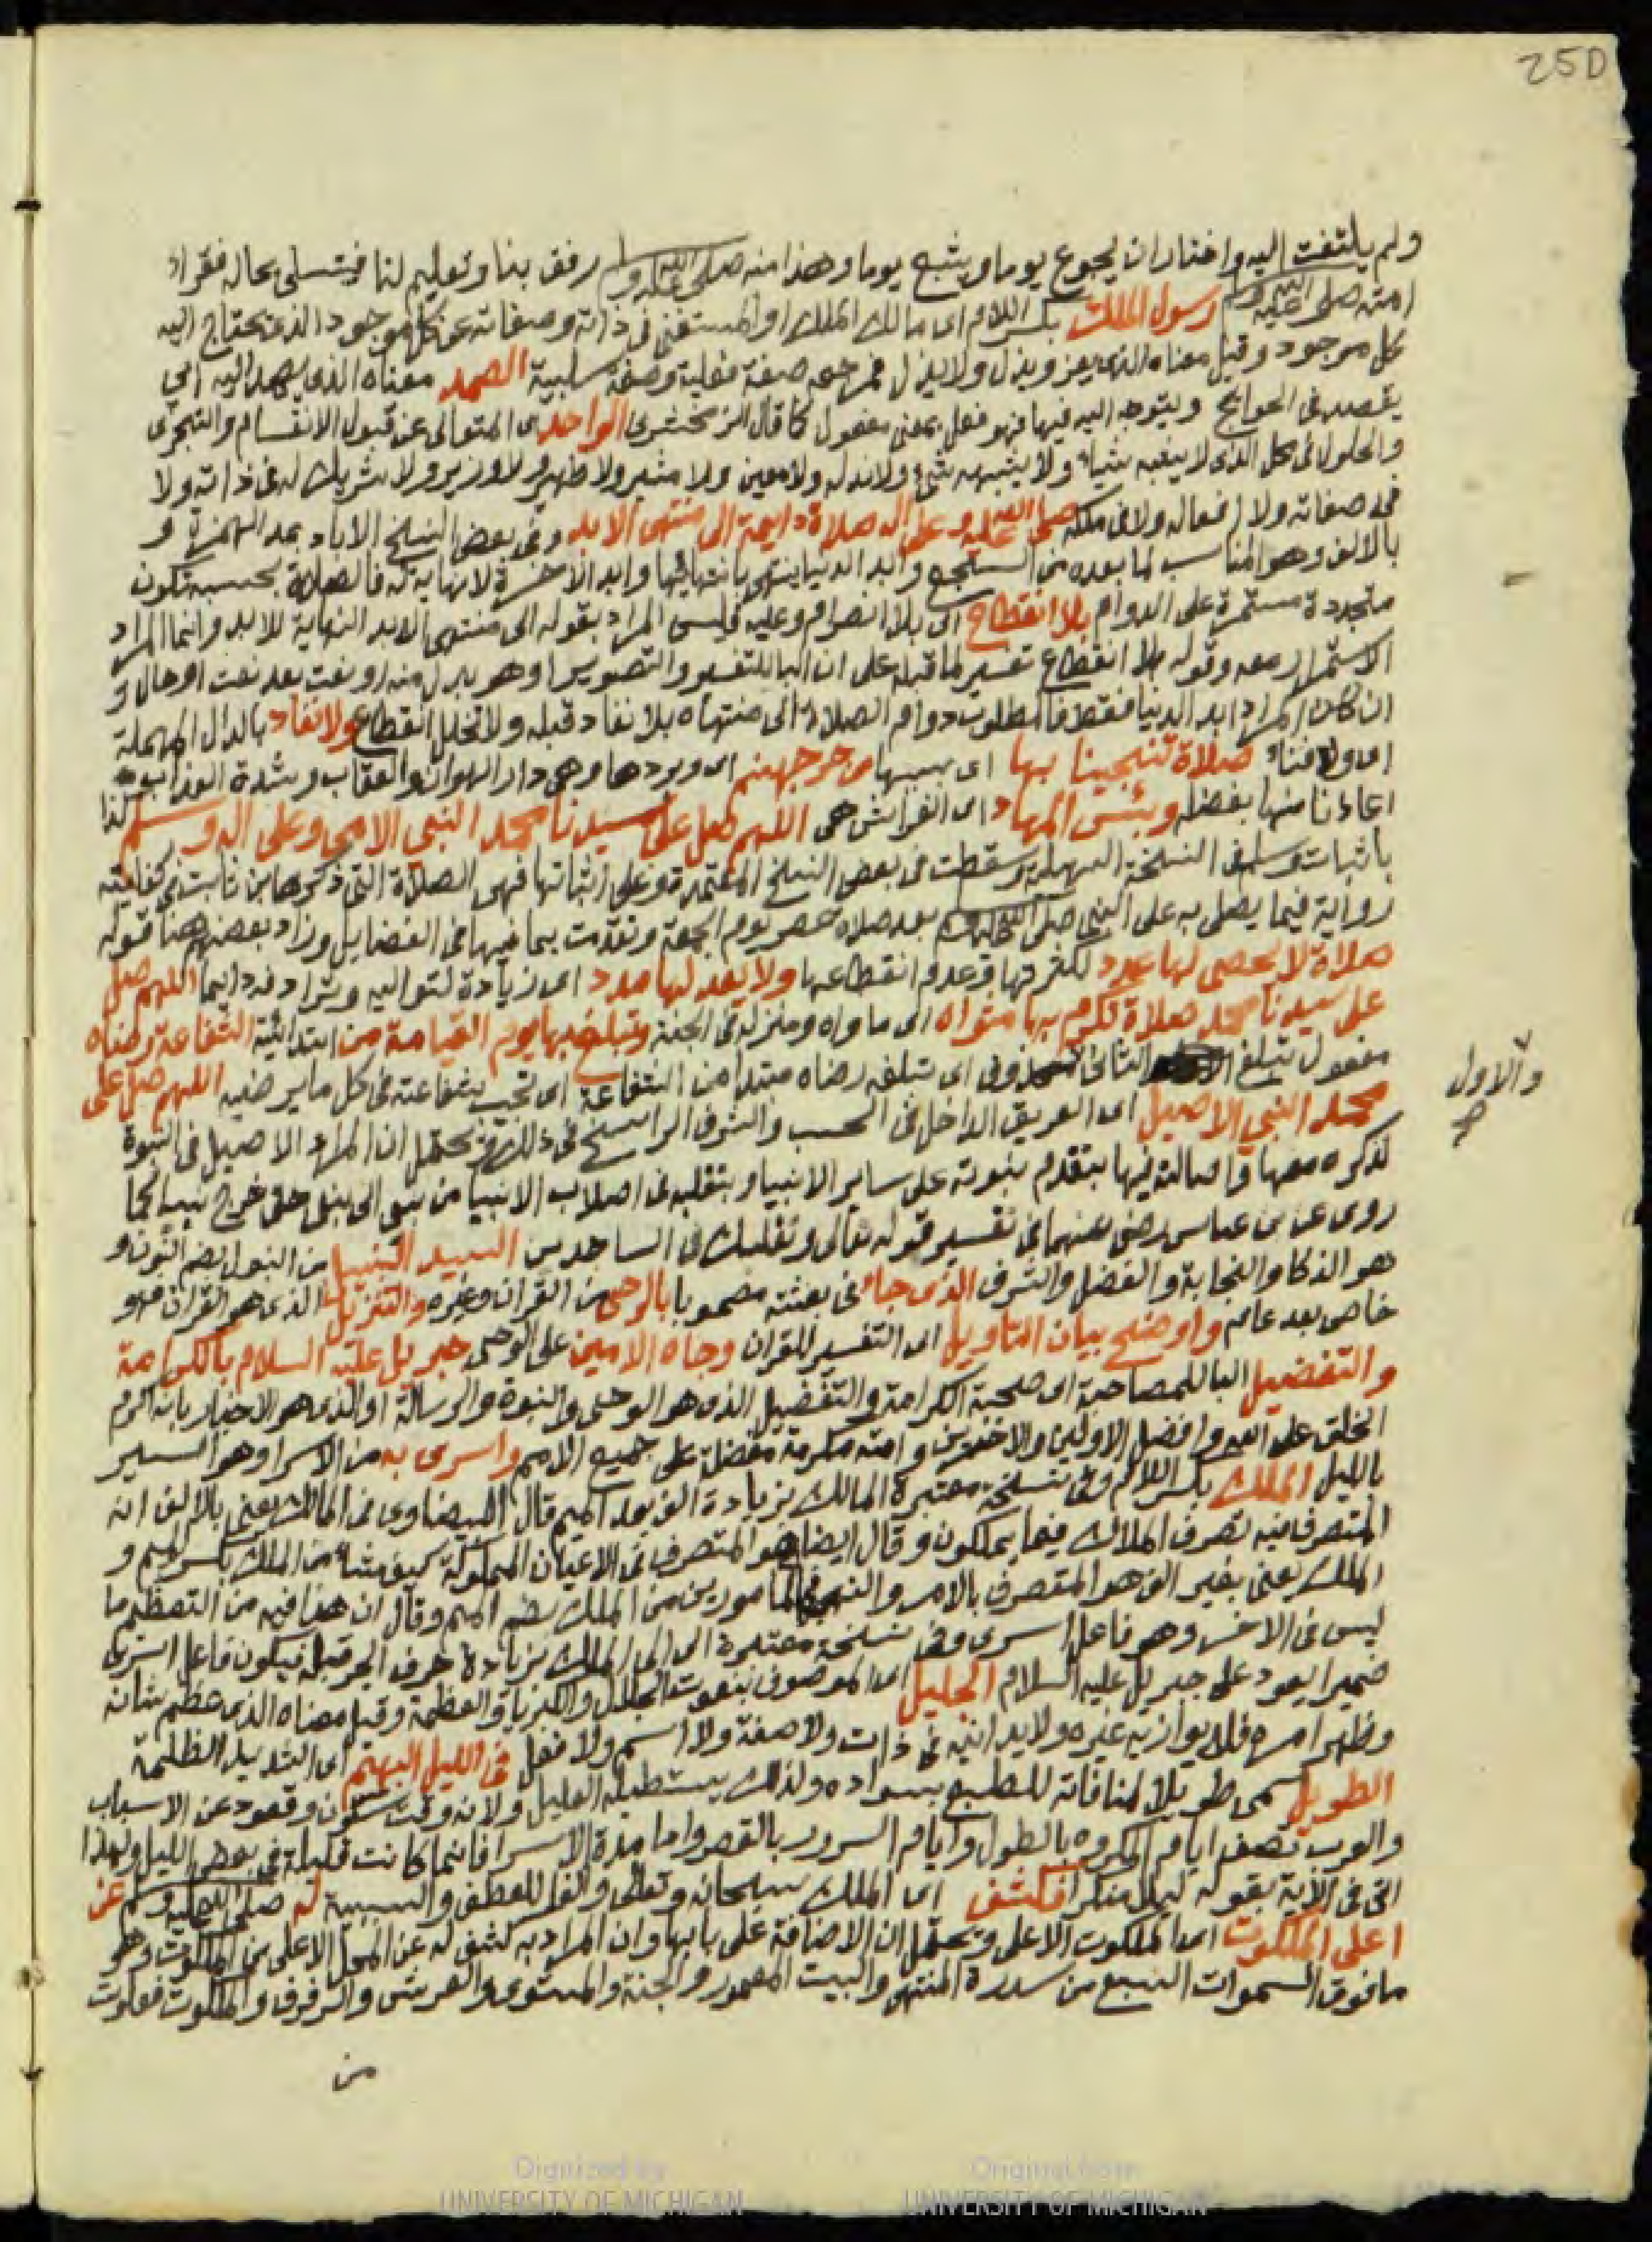 25D
ولم يلتفت اليه واختار ان يجوع يوما ويشبع يوما وهذا منه صلى الله عليه وسلم رفق بنا وتعليم لنا فيتسلى بحاله فقراء
امته صلى الله عليه وسلم رسول الملك بكسر اللام اى مالك الملك او المستغنى فى ذاته وصفاته عن كل موجود الذى يحتاج اليه
كل موجود وقيل معناه الذى يعز ويذل ولا يذل فمرجعه صفة فعلية وصفة سلبية الصمد معناه الذى يصمد اليه اي
يقصد فى الحوايج ويتوجه اليه فيها فهو فعل بمعنى مفعول كما قال الزمخشرى الواحد اى المتعالى عن قبول الانقسام والتجزى
والحلول فى محل الذى لا يشبه شيأ ولا يشبهه شئ ولا ند له ولا معين ولا مشير ولا ظهير ولا وزير ولا شريك له فى ذاته ولا
فى صفاته ولا افعاله ولا فى ملكه صلى الله عليه وعلى اله صلاة دايمة الى منتهى الابد وفى بعض النسخ الاباد بمد الهمزة و
بالالف وهو المناسب لما بعده من السجع وابد الدنيا ينتهى بانتهائها وابد الاخرة لا نهاية له فالصلاة بحسبه تكون
متجددة مستمرة على الدوام بلا انقطاع اى بلا انصرام وعليه فليس المراد بقوله الى منتهى الابد النهاية للابد وانما المراد
الاستمرار معه وقوله بلا انقطاع تفسير لما قبله على ان البا للتفسير والتصوير او هو بدل منه او نعت بعد نعت او حال و
ان كان المراد ابد الدنيا فقط فالمطلوب دوام الصلاة الى منتهاه بلا نفاد قبله ولا تخلل انقطاع ولا نفاد بالدال المهملة
اى ولا فناء صلاة تنجينا بها اى بسببها من حر جهنم اى وبردها وهى دار الهوان والعقاب وشدة العذاب
اعاذنا منها بفضله وبئس المهاد اى الفراش هى اللهم صل على سيدنا محمد النبى الامى وعلى اله وسلم كذا
باثبات وسلم فى النسخة السهلية وسقطت فى بعض النسخ المعتمدة وعلى اثباتها فهى الصلاة التى ذكرها ابن ثابت فى كفايته
رواية فيما يصلى به على النبى صلى الله عليه وسلم بعد صلاة عصر يوم الجمعة وتقدمت بما فيها فى الفضايل وزاد بعضهم هنا قوله
صلاة لا يحصى لها عدد لكثرتها وعدم انقطاعها ولا يعد لها مدد اى زيادة لتواليه وترادفه دايما اللهم صل
على سيدنا محمد صلاة تكرم بها مثواه اى ماواه ومنزله فى الجنة وتبلغ بها يوم القيامة من ابتدائية الشفاعة رضاه
مفعول تبلغ الثانى محذوف اى تبلغه رضاه مبتدا من الشفاعة اى تجب شفاعته فى كل ما يرضيه اللهم صل على
والاول
محمد النبى الاصيل اى العريق الداخل فى الحسب والشرف الراسخ فى ذلك ويحتمل ان المراد الاصيل فى النبوة
لذكره معها واصالته فيها بتقدم نبوته على ساير الانبيا وبتقلبه فى اصلاب الانبيا من نبى الى نبى حتى خرج نبيا كما
روى عن بن عباس رضى عنهما فى تفسير قوله تعالى وتقلبك فى الساجدين السيد النبيل من النبل بضم النون و
هو الذكا والنجابة والفضل والشرف الذى جاء فى بعثته مصحوبا بالوحى من القران وغيره والتنزيل الذى هو القران فهو
خاص بعد عام واوضح بيان التاويل اى التفسير للقران وجاه الامين على الوحى جبريل عليه السلام بالكرامة
والتفضيل البا للمصاحبة اى صحبة الكرامة والتفضيل الذى هو الوحى والنبوة والرسالة او الذى هو الاخبار بانه اكرم
الخلق على الله وافضل الاولين والاخرين وامته مكرمة مفضلة على جميع الامم واسرى به من الاسرا وهو السير
بالليل الملك بكسر اللام وفى نسخة معتبرة المالك بزيادة الف بعد الميم قال البيضاوى فى المالك يعنى بالالف انه
المتصرف فيه تصرف الملاك فيما يملكون وقال ايضا هو المتصرف فى الاعيان المملوكة كيف شاء من الملك بكسر الميم و
الملك يعنى بغير الف هو المتصرف بالامر والنهى فى المامورين من الملك بضم الميم وقال ان هذا فيه من التعظيم ما
ليس فى الاخر وهو فاعل اسرى وفى نسخة معتبرة اى الى الملك بزيادة حرف الجر قبله فيكون فاعل اسرى
ضميرا يعود على جبريل عليه السلام الجليل اى الموصوف بنعوت الجلال والكبريا والعظمة وقيل معناه الذى عظم شانه
وظهر امره فلا يوازيه غيره ولا يدانيه فى ذات ولا صفة ولا اسم ولا فعل فى الليل البهيم اى الشديد الظلمة
الطويل سمى طويلا لمنافاته للطبع بسواده ولذلك يستطيله العليل ولانه وقت سكون وقعود عن الاسباب
والعرب تصف ايام المكروه بالطول وايام السرور بالقصر واما مدة الاسرا فانما كانت قليلة فى بعض الليل ولهذا
اتى فى الاية بقوله ليلا منكرا فكشف اى الملك سبحانه وتعالى والفا للعطف والسببية له صلى الله عليه وسلم عن
اعلى الملكوت اى الملكوت الاعلى ويحتمل ان الاضافة على بابها وان المراد به كشف له عن المحل الاعلى من الملكوت وهو
ما فوق السموات السبع من سدرة المنتهى والبيت المعمور والجنة والمستوى والعرش والرفرف والملكوت فعلوت
من
Digitized by
UNIVERSITY OF MICHIGAN
Original from
UNIVERSITY OF MICHIGAN